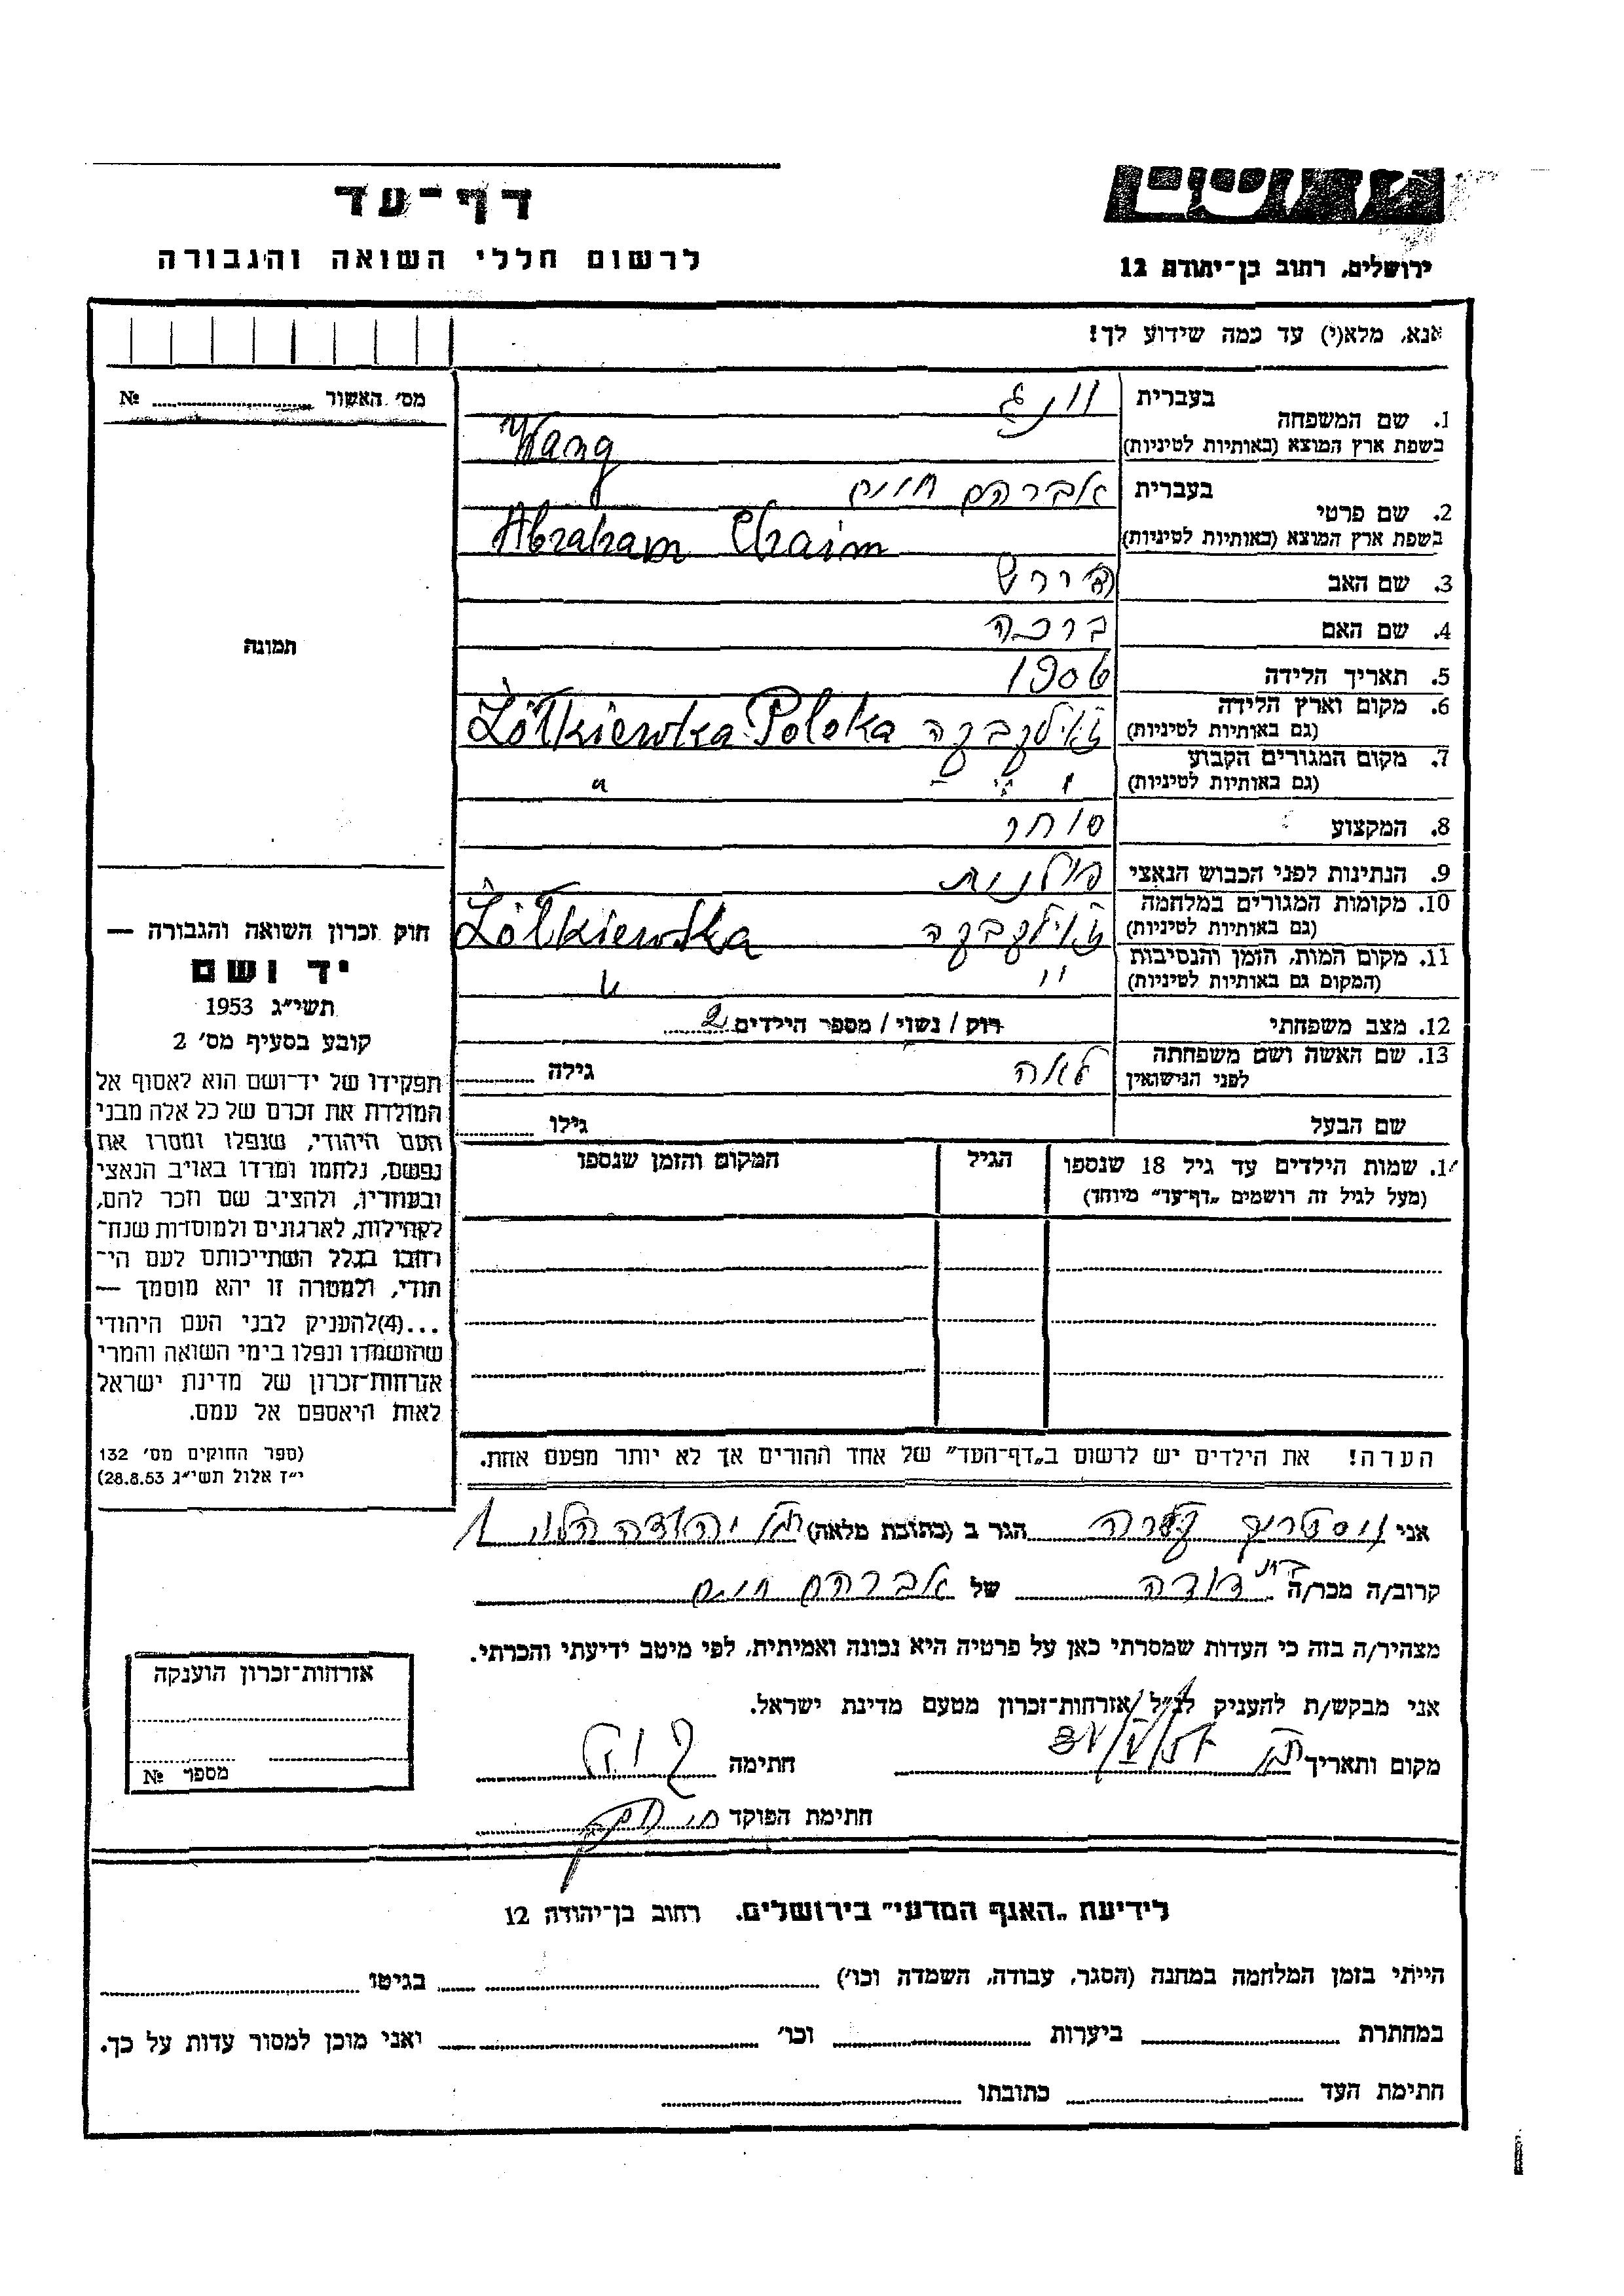 יד ושם
ירושלים, רחוב בן-יהודה 12
דף-עד
לרשום חללי השואה והגבורה
אנא, מלא(י) עד כמה שידוע לך!
מס׳ האשור № 
1. שם המשפחה
בעברית
וונג
בשפת ארץ המוצא (באותיות לטיניות)
Wang
2. שם פרטי
בעברית
אברהם חיים
בשפת ארץ המוצא (באותיות לטיניות)
Abraham Chaim
3. שם האב הירש
4. שם האם ברכה
5. תאריך הלידה
6. מקום וארץ הלידה
(גם באותיות לטיניות)
זולקבקה Żółkiewka Polska
7. מקום המגורים הקבוע
(גם באותיות לטיניות)
" " "
8. המקצוע סוחר
9. הנתינות לפני הכבוש הנאצי פולנית
10. מקומות המגורים במלחמה
(גם באותיות לטיניות)
Żółkiewka
11. מקום המות, הזמן והנסיבות
(המקום גם באותיות לטיניות)
" "
12. מצב משפחתי רוק / נשוי / מספר הילדים 2
13. שם האשה ושם משפחתה
לפני הנישואין
לאה גילה
שם הבעל גילו
1. שמות הילדים עד גיל 18 שנספו
(מעל לגיל זה רושמים „דף-עד" מיוחד)
הגיל
המקום והזמן שנספו
הערה! את הילדים יש לרשום ב„דף-העד" של אחד ההורים אך לא יותר מפעם אחת.
תמונה
חוק זכרון השואה והגבורה —
יד ושם
תשי״ג 1953
קובע בסעיף מס׳ 2
תפקידו של יד-ושם הוא לאסוף אל
המולדת את זכרם של כל אלה מבני
העם היהודי, שנפלו ומסרו את
נפשם, נלחמו ומרדו באויב הנאצי
ובעוזריו, ולהציב שם וזכר להם,
לקהילות, לארגונים ולמוסדות שנח-
רבו בגלל השתייכותם לעם הי-
הודי, ולמטרה זו יהא מוסמך —
...(4)להעניק לבני העם היהודי
שהושמדו ונפלו בימי השואה והמרי
אזרחות-זכרון של מדינת ישראל
לאות היאספם אל עמם.
(ספר החוקים מס׳ 132
י״ז אלול תשי״ג 28.8.53)
אני הגר ב (כתובת מלאה) יהודה הלוי 1
קרוב/ה מכר/ה בת דודה של אברהם חיים
מצהיר/ה בזה כי העדות שמסרתי כאן על פרטיה היא נכונה ואמיתית, לפי מיטב ידיעתי והכרתי.
אני מבקש/ת להעניק לנ״ל אזרחות-זכרון מטעם מדינת ישראל.
מקום ותאריך
חתימה
חתימת הפוקד
אזרחות-זכרון הוענקה
מספר №
לידיעת „האגף המדעי" בירושלים. רחוב בן-יהודה 12
הייתי בזמן המלחמה במחנה (הסגר, עבודה, השמדה וכו׳) בגיטו
במחתרת ביערות וכו׳ ואני מוכן למסור עדות על כך.
חתימת העד כתובתו